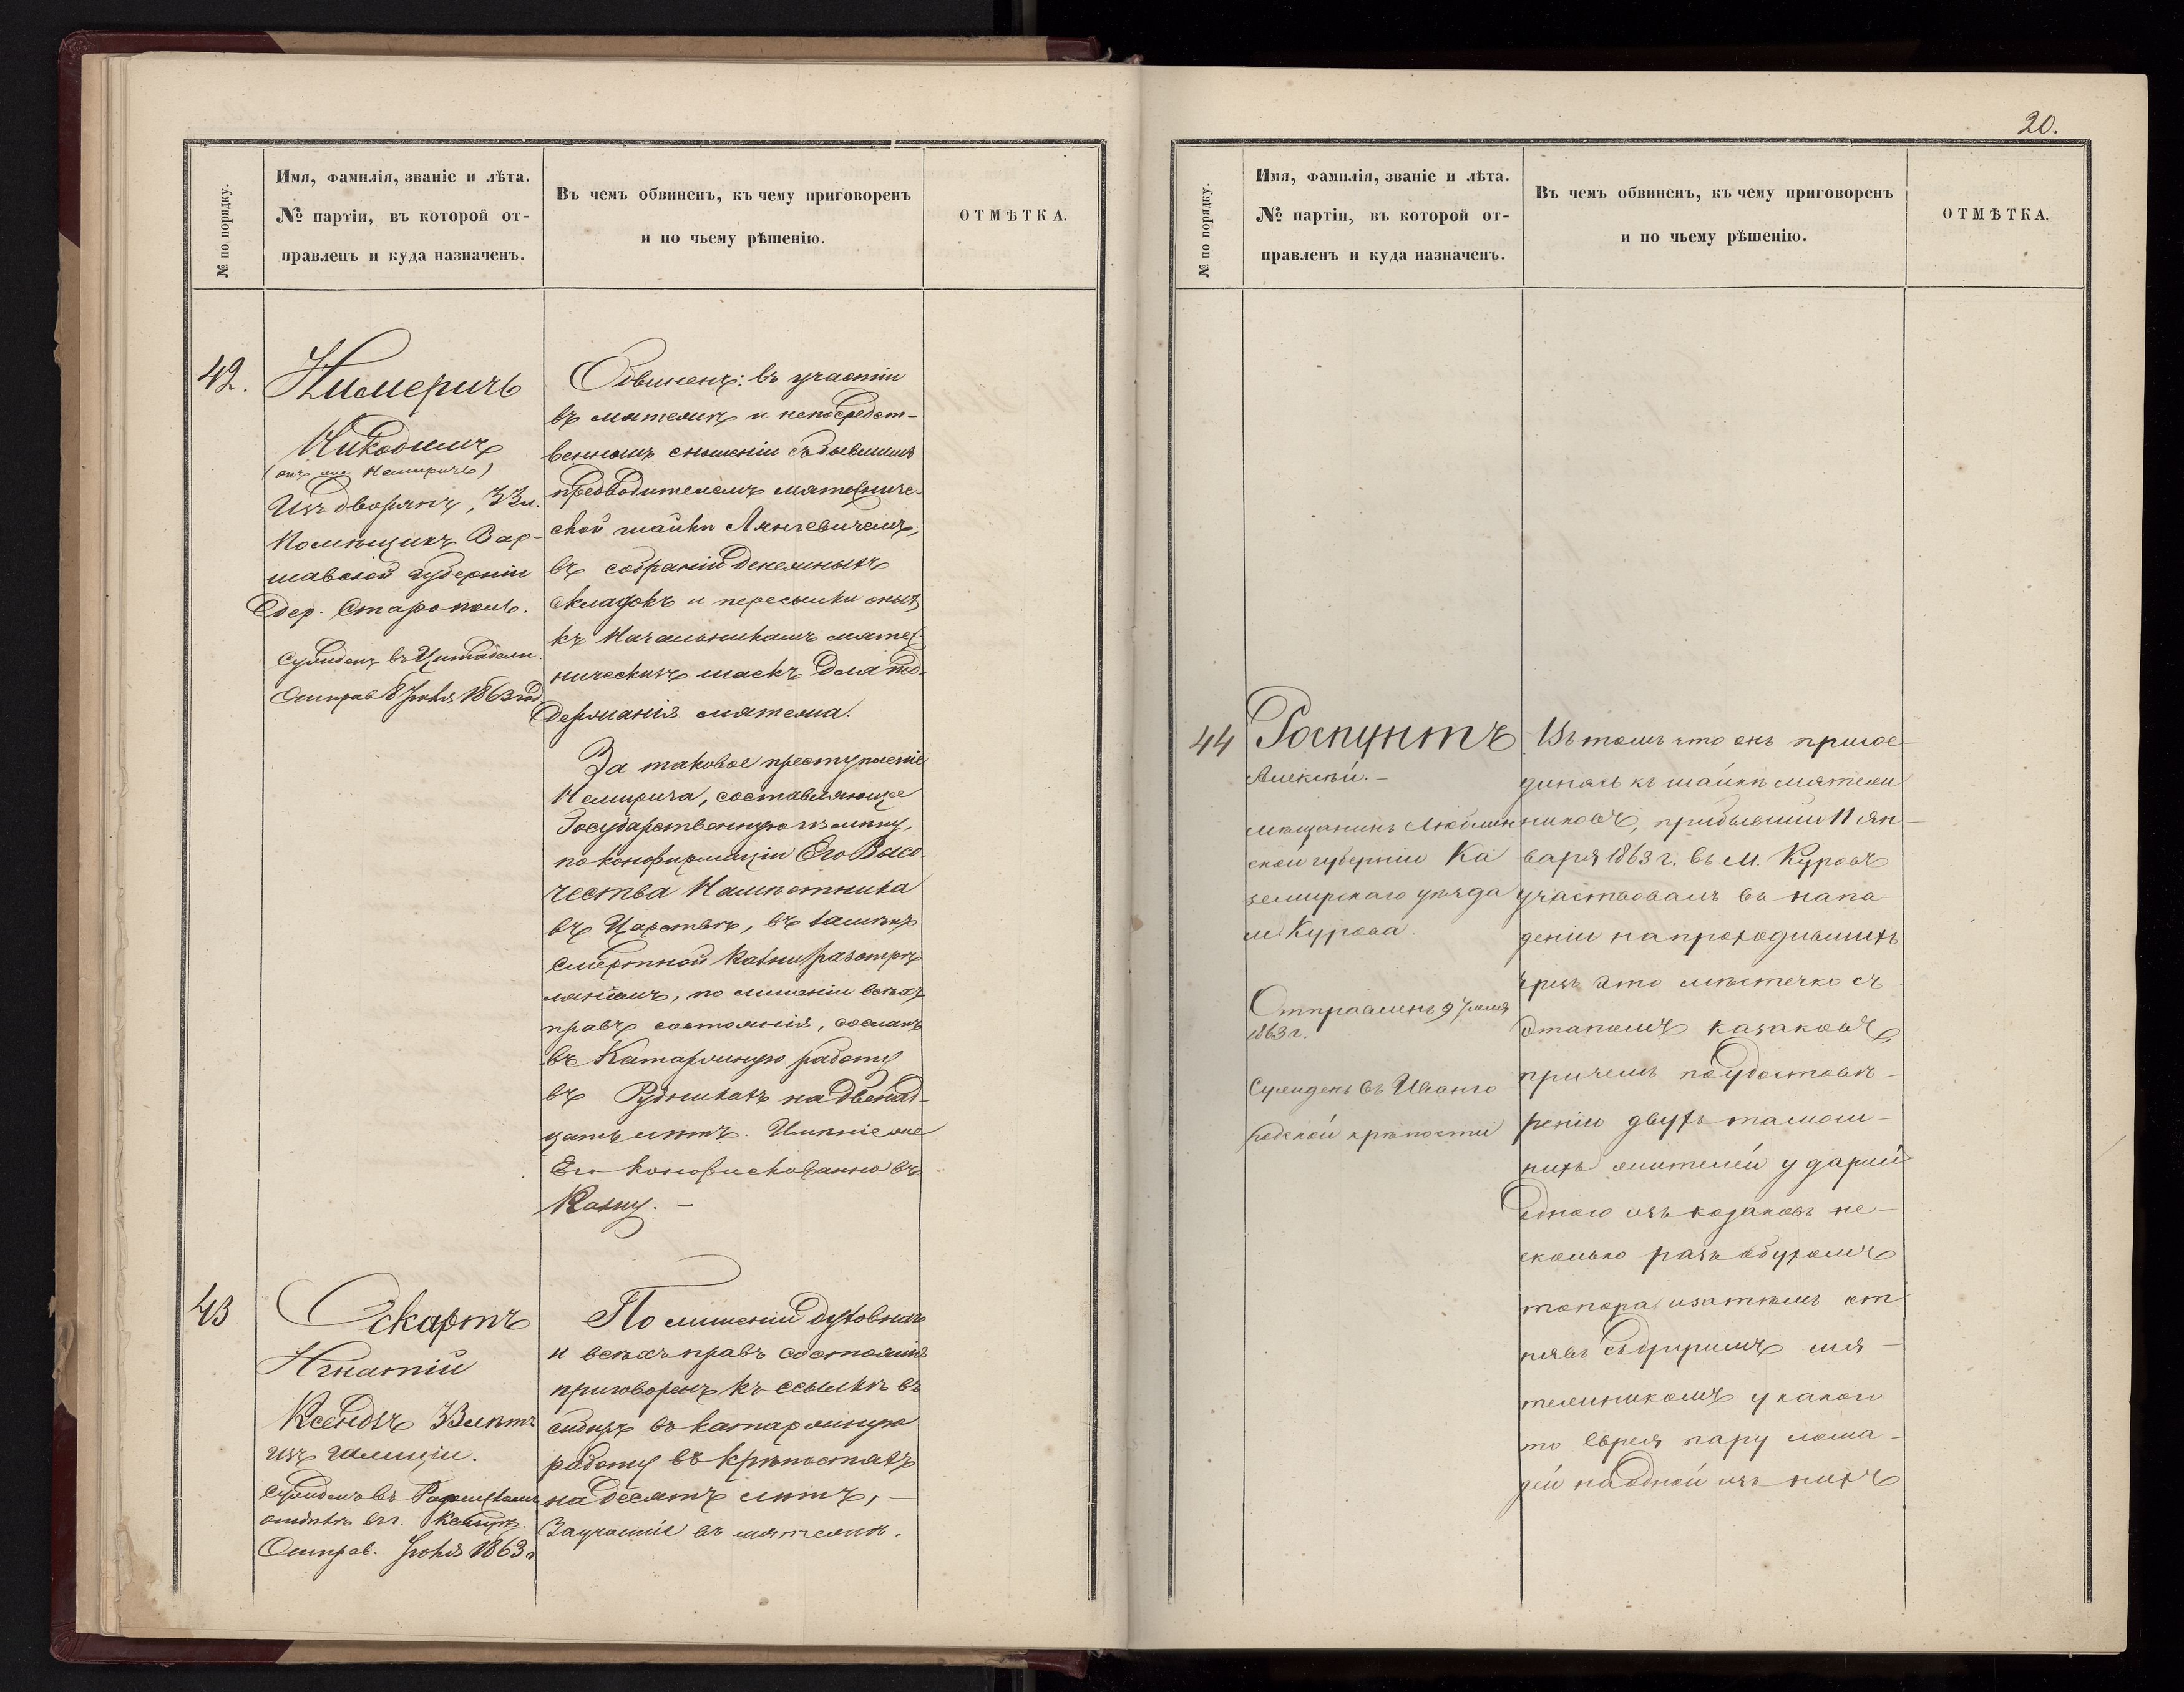 20.
№ по порядку.
Имя, фамилія, званіе и лѣта.
№ партіи, въ которой от-
правленъ и куда назначенъ.
Въ чемъ обвиненъ, къ чему приговоренъ
и по чьему рѣшенію.
ОТМѢТКА.
42.
Нимеричъ
Никодимъ
(онъ же Немиричъ)
Изъ дворянъ, 33 л.
Помѣщикъ Вар-
шавской губерніи
дер.
Сужденъ въ Цитадели.
Отправ 8 Іюня 1863 год
Обвиненъ: въ участіи
въ мятежѣ и непосредст-
венномъ сношеніи съ бывшимъ
предводителемъ мятежниче-
ской шайки Лянгевичемъ;
въ собраніи денежныхъ
складокъ и пересылки оныхъ
къ Начальникамъ мятеж-
ническихъ шаекъ для под-
держанія мятежа.
За таковое преступленіе
Немирича, составляющее
Государственную измѣну,
по конфирмаціи Его Высо-
чества Намѣстника
въ Царствѣ, въ замѣнъ
смертной казни разстрѣ-
ляніемъ, по лишеніи всѣхъ
правъ состоянія, сосланъ
въ Каторжную работу
въ Рудникахъ на двѣнад-
цать лѣтъ. Имѣніе же
Его конфискованно въ
Казну. —
43
Оскартъ
Игнатій
Ксендзъ 33 лѣтъ
изъ Галиціи.
Сужденъ въ
отдѣлѣ въ г.
Отправ. Іюня 1863 г
По лишеніи духовнаго
и всѣхъ правъ состоянія
приговоренъ къ ссылкѣ въ
сибирь въ каторжную
работу въ крѣпостяхъ
на десять лѣтъ, —
За участіе въ мятежѣ.
№ по порядку.
Имя, фамилія, званіе и лѣта.
№ партіи, въ которой от-
правленъ и куда назначенъ.
Въ чемъ обвиненъ, къ чему приговоренъ
и по чьему рѣшенію.
ОТМѢТКА.
44
Роспунтъ
Алексѣй. —
мѣщанинъ Люблин
ской губерніи Ка
земирскаго уѣзда
м Курова.
Отправленъ 9 Іюня
1863 г.
Сужденъ въ Иванго
родской крѣпости
Въ томъ что онъ присое-
динясь къ шайкѣ мятежн
никовъ, прибывшей 11 Ян-
варя 1863 г. въ М. Куровъ
участвовалъ въ напа-
деніи на проходившихъ
чрезъ это мѣстечко съ
этапомъ казаковъ,
причемъ по удостовѣ-
ренію двухъ тамош-
нихъ жителей ударилъ
одного изъ козаковъ не-
сколько разъ обухомъ
топора, и затѣмъ от
нявъ съ другимъ мя-
тежникомъ у какого
то Еврея пару лоша-
дей на одной изъ нихъ